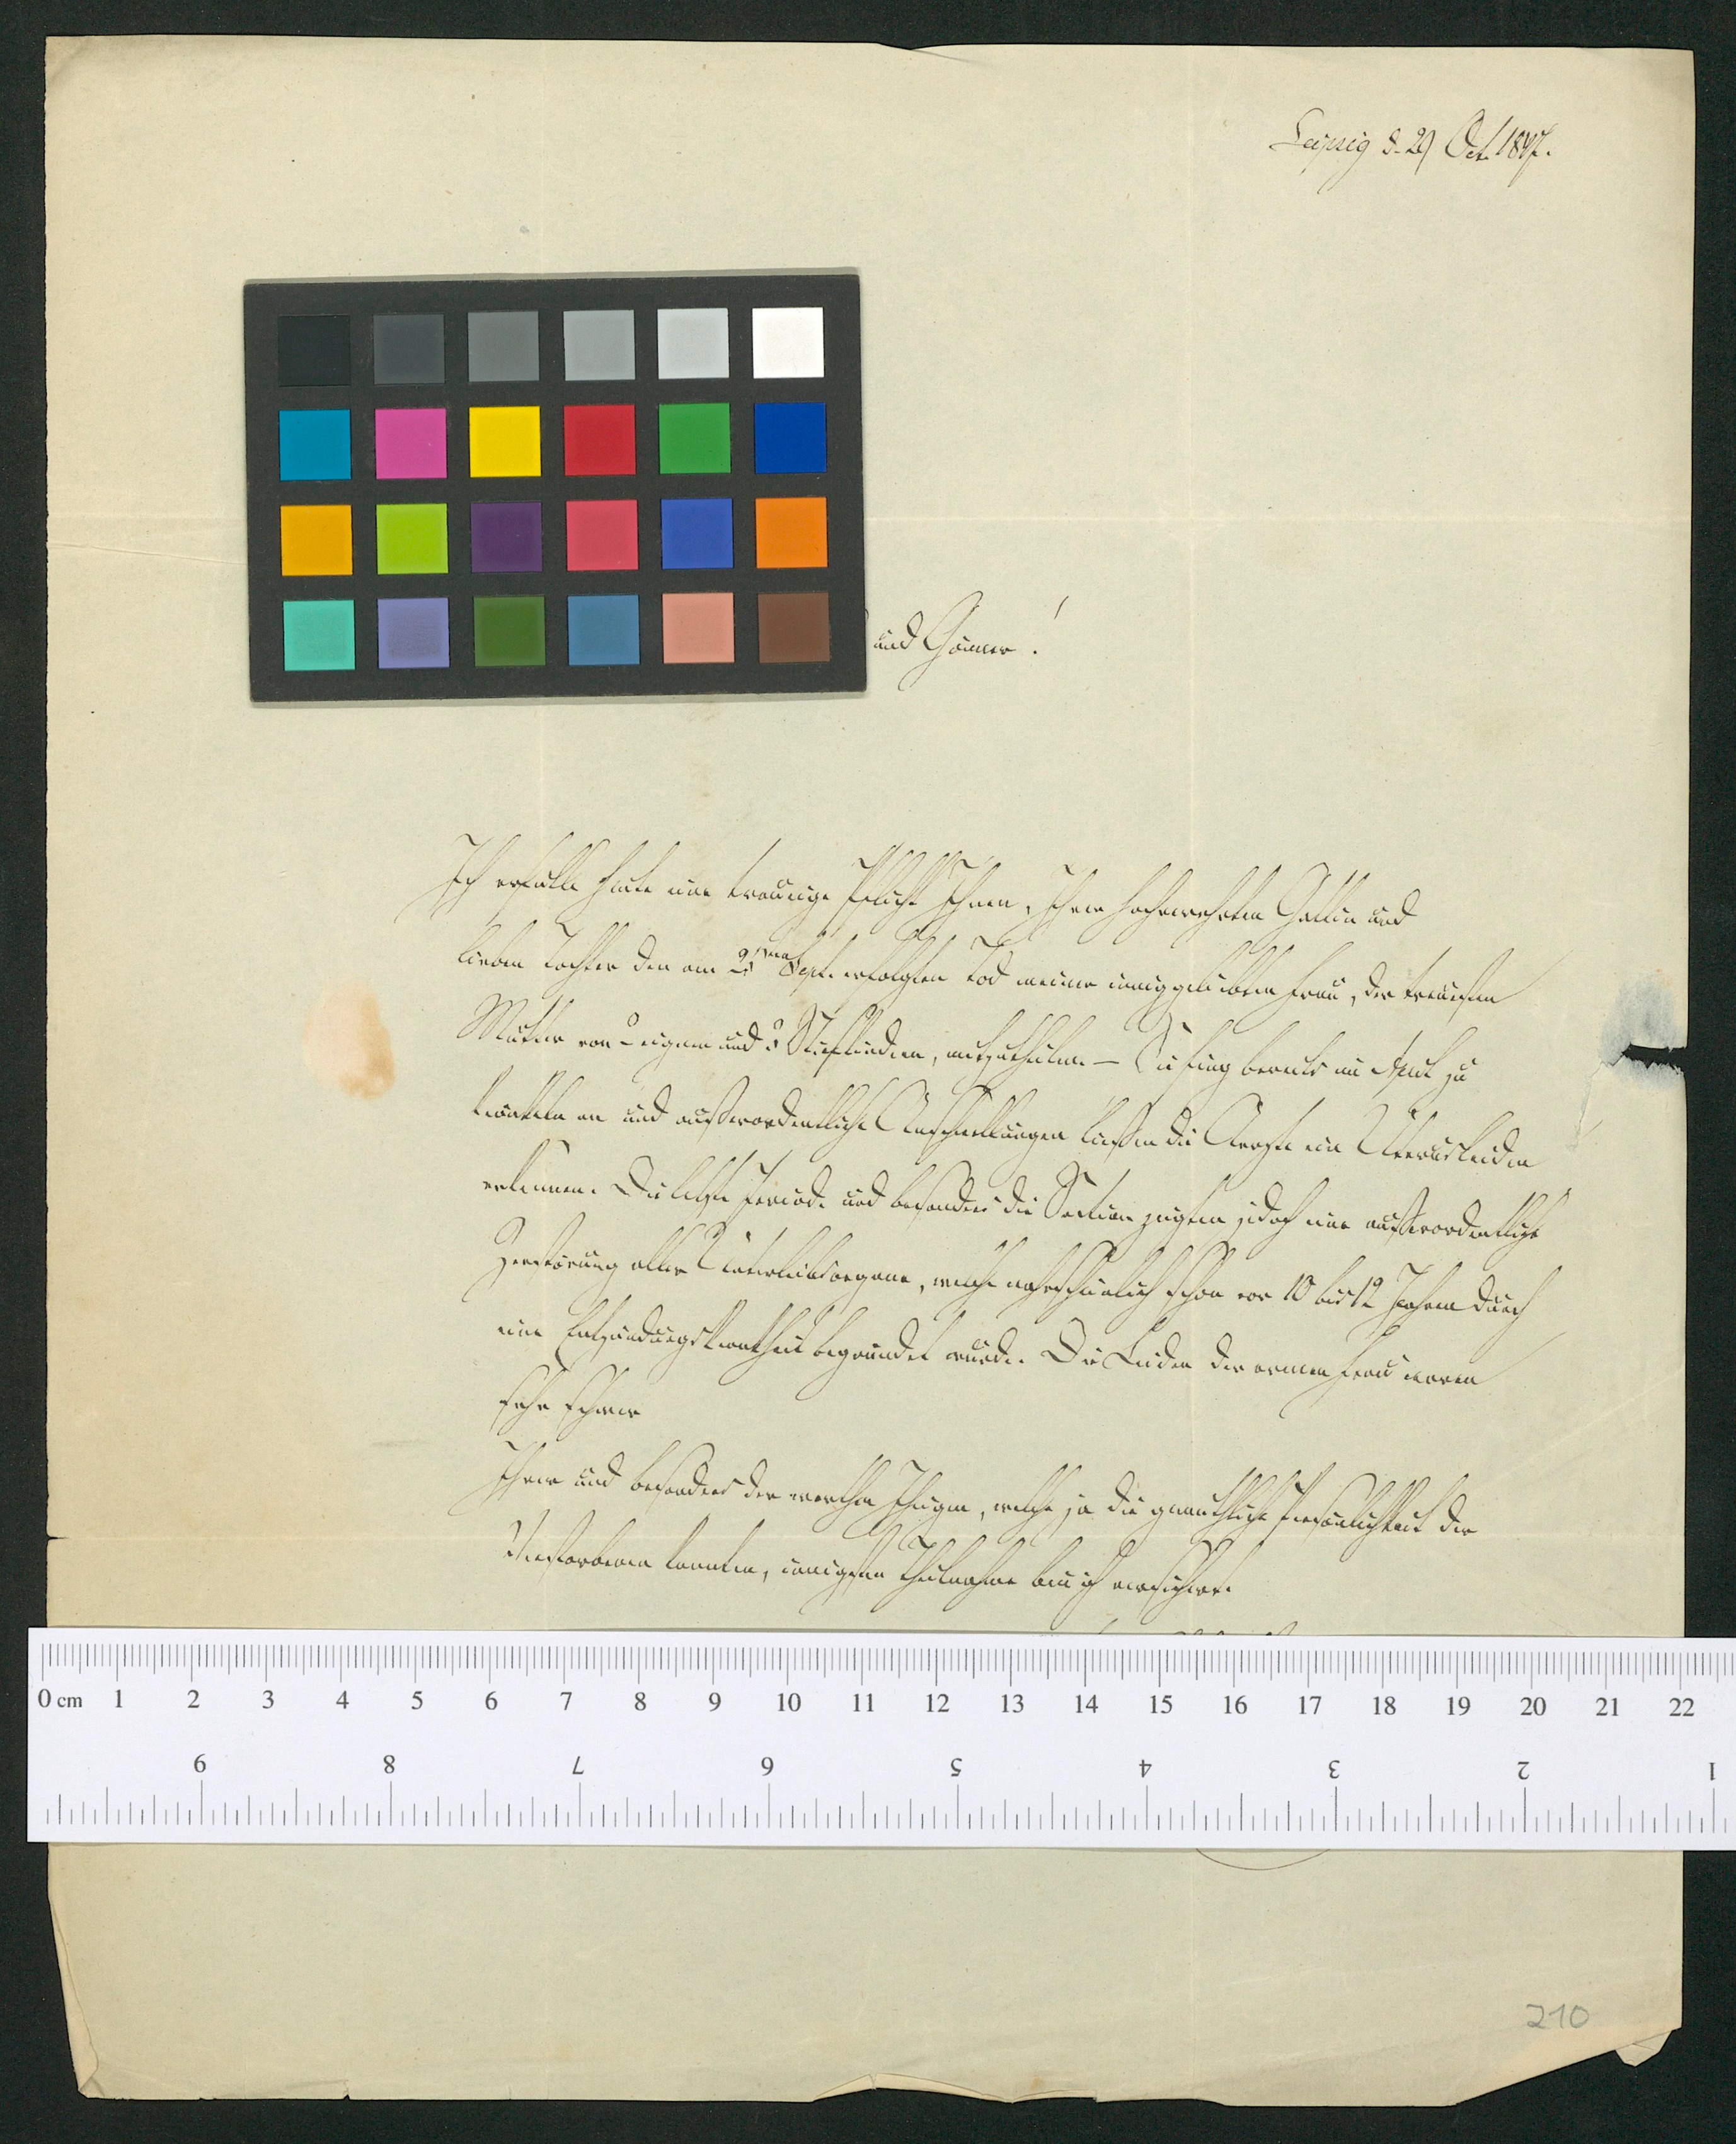 Leipzig d. 29 Oct. 1847.
und Gönner!
Ich erfülle heute eine traurige Pflicht Ihnen, Ihrer hochverehrten Gattin und
lieben Tochter den am Sept. erfolgten Tod meiner innig geliebten Frau, der treuesten
Mutter von 2 eignen und 3 Stiefkindern, mitzutheilen. – Sie fing bereits im April zu
kränkeln an und außerordentliche Anschwellungen ließen die Aerzte ein Uterusleiden
erkennen. Die letzte Periode und besonders die Section zeigten jedoch eine außerordentliche
Zerstörung aller Unterleibsorgane, welche wahrscheinlich schon vor 10 bis 12 Jahren durch
eine Entzündungskrankheit begründet wurde. Die Leiden der armen Frau waren
sehr schwer
Ihrer und besonders der werthen Ihrigen, welche ja die gemüthliche Persönlichkeit der
Verstorbenen kannten, innigsten Theilnahme bin ich versichert.
0 cm 1 2 3 4 5 6 7 8 9 10 11 12 13 14 15 16 17 18 19 20 21 22
9 8 7 6 5 4 3 2 1
210